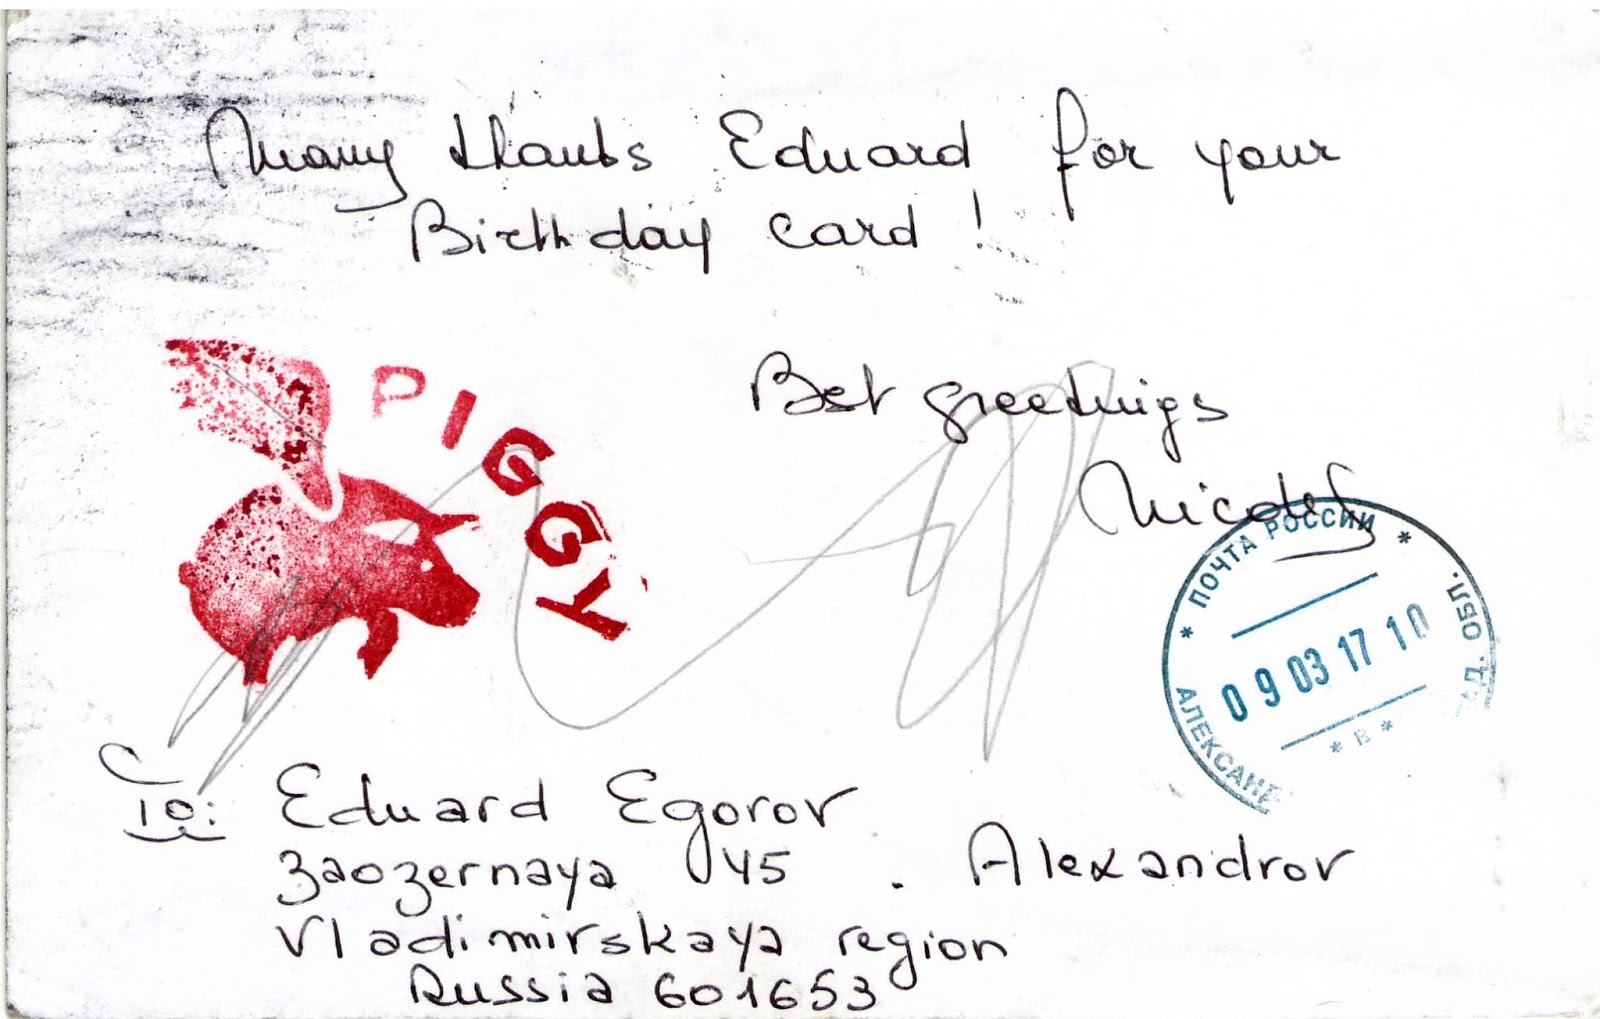 Many thanks Eduard for your
Birthday card !
PIGGY
Best greetings
ПОЧТА РОССИИ
ОБЛ.
09 03 17 10
* В *
АЛЕКСАНД
To:
Eduard Egorov
Zaozernaya 45 . Alexandrov
Vladimirskaya region
Russia 601653